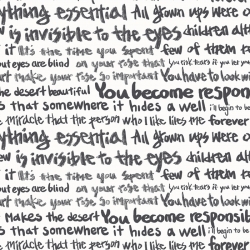 ything essential All grown ups were on
w is invisible to the eyes children altho
if It's the time you spent few of them r
out eyes are blind on your rose that you risk tears if you let your
rt make your rose so important You have to look wi
the desert beautiful You become respon
s that somewhere it hides a well i'll begin to be
miracle that the person who I like likes me forever
ything essential All grown ups were on
w is invisible to the eyes children alth
if It's the time you spent few of them r
but eyes are blind on your rose that you risk tears if you let your
art make your rose so important You have to look wi
t Makes the desert You become responsib
s that somewhere it hides a well i'll begin to be h
miracle that the person who I like likes me forever